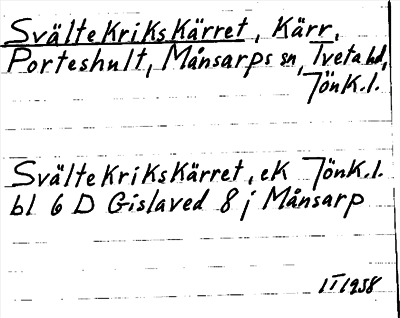 Svältekrikskärret, Kärr,
Porteshult, Månsarps sn, Tveta hd,
Jönk.l.
Svältekrikskärret, ek Jönk.l.
bl 6 D Gislaved 8 j Månsarp
1/I 1958